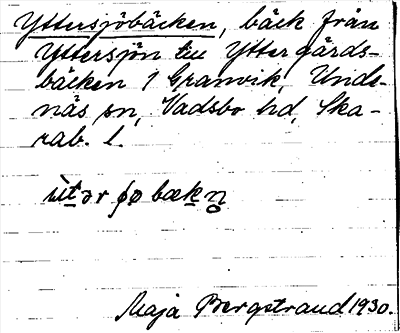 Yttersjöbäcken, bäck från
Yttersjön till Yttergärds-
bäcken / Granvik, Unde-
näs sn, Vadsbo hd, Ska-
rab. l.
Maja Bergstrand 1930.